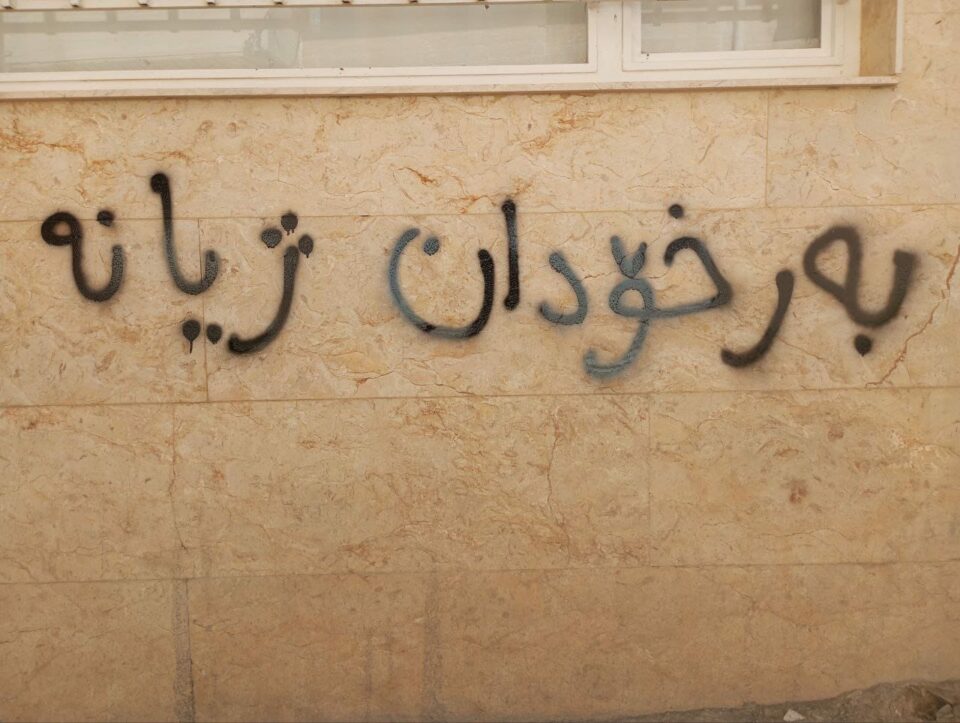 بەرخۆدان ژیانە